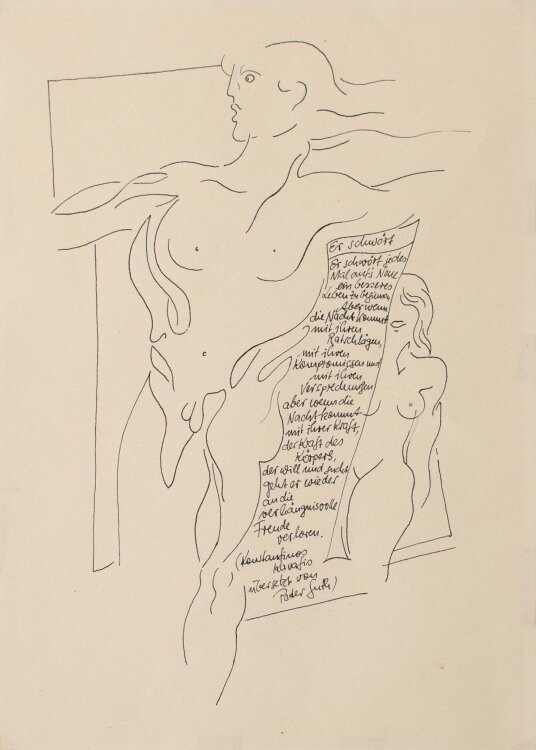 Er schwört
Er schwört jedes
Mal aufs Neue
ein besseres
Leben zu beginnen,
Aber wenn
die Nacht kommt
mit ihren
Ratschlägen,
mit ihren
Kompromissen und
mit ihren
Versprechungen
aber wenn die
Nacht kommt
mit ihrer Kraft,
der Kraft des
Körpers,
der will und sucht
geht er wieder
an die
verhängnisvolle
Freude
verloren.
(Konstantinos
Kavafis
übersetzt von
Peter